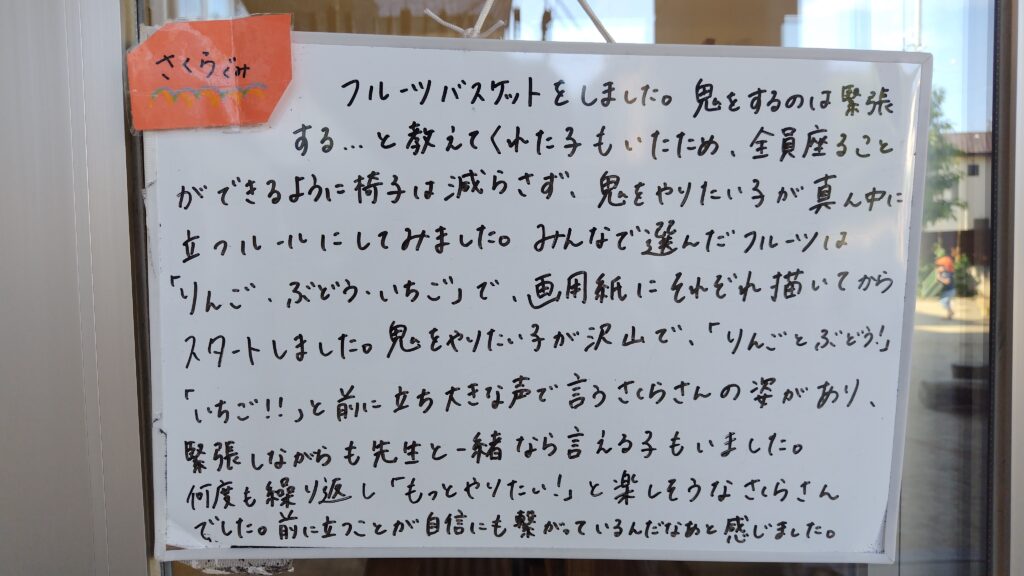 さくらぐみ
フルーツバスケットをしました。鬼をするのは緊張
する…と教えてくれた子もいたため、全員座ること
ができるように椅子は減らさず、鬼をやりたい子が真ん中に
立つルールにしてみました。みんなで選んだフルーツは
「りんご、ぶどう・いちご」で、画用紙にそれぞれ描いてから
スタートしました。鬼をやりたい子が沢山で、「りんごとぶどう!」
「いちご!!」と前に立ち大きな声で言うさくらさんの姿があり、
緊張しながらも先生と一緒なら言える子もいました。
何度も繰り返し「もっとやりたい!」と楽しそうなさくらさん
でした。前に立つことが自信にも繋がっているんだなあと感じました。